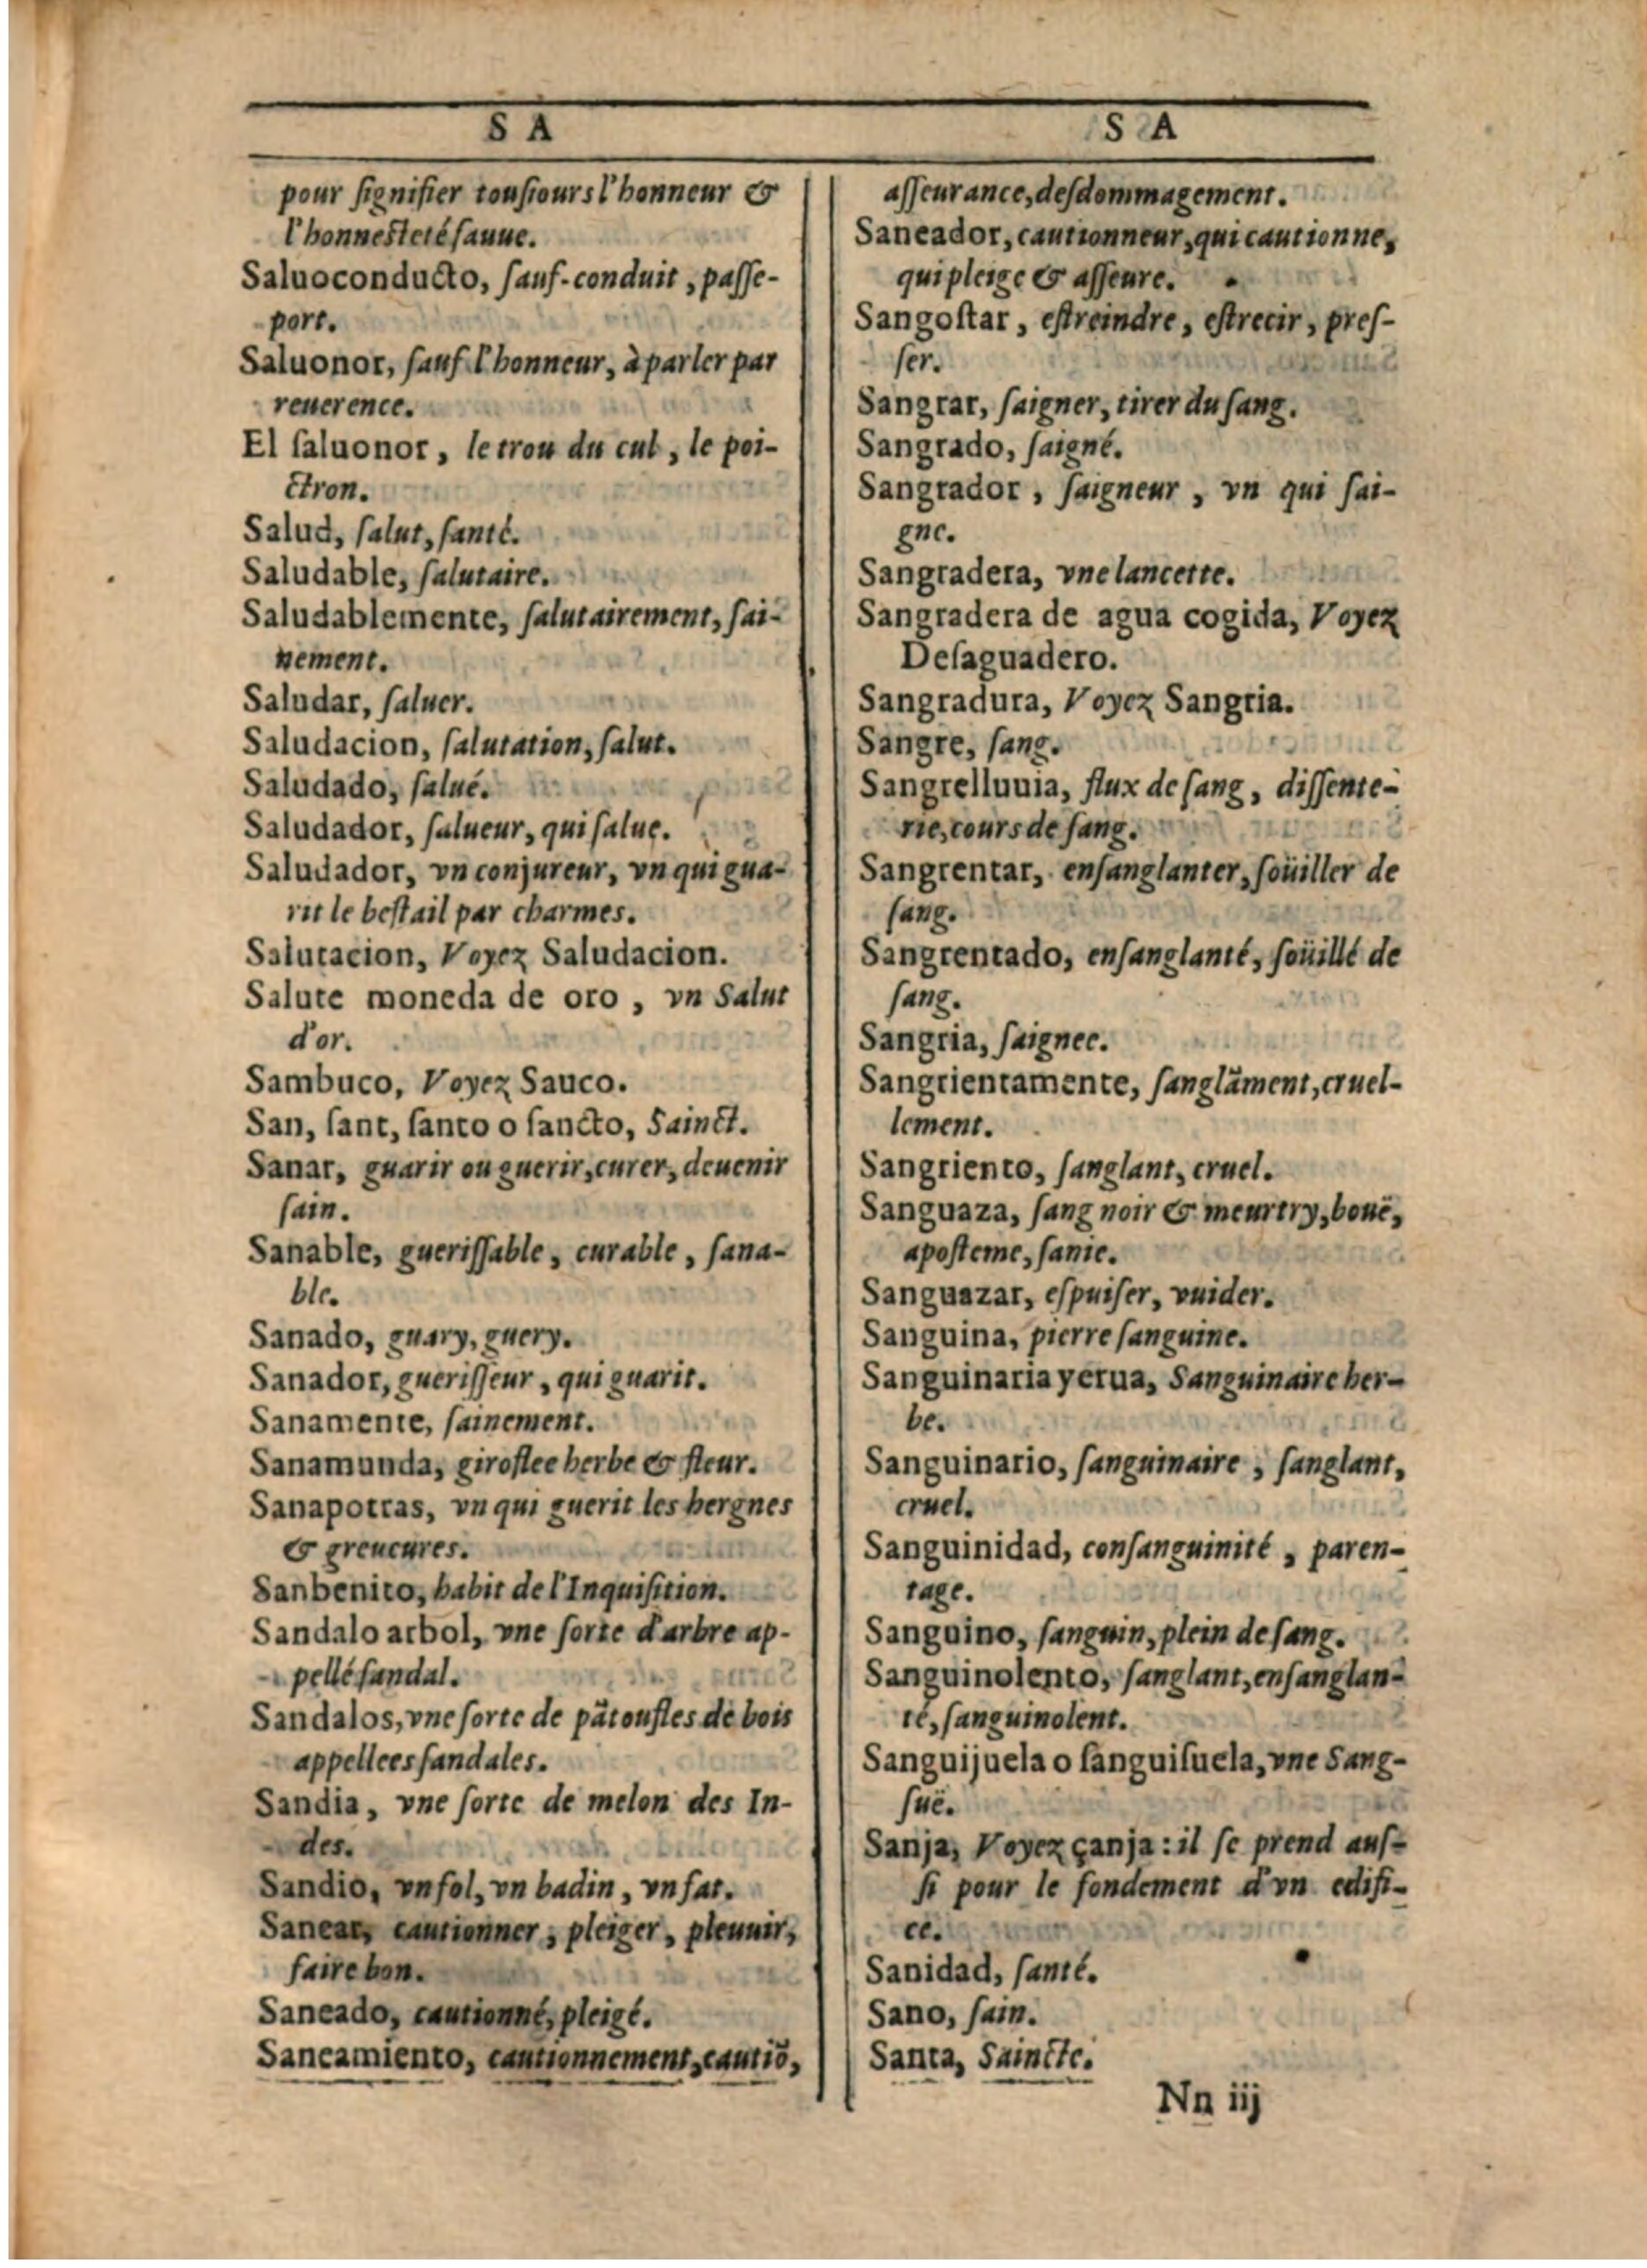 S A
pour ſignifier touſiours l'honneur &
l'honneſteté ſauue.
Saluoconducto, ſauf-conduit, paſſe-
port.
Saluonor, ſauf l'honneur, à parler par
reuerence.
El ſaluonor, le trou du cul, le poi-
ctron.
Salud, ſalut, ſanté.
Saludable, ſalutaire.
Saludablemente, ſalutairement, ſai-
nement.
Saludar, ſaluer.
Saludacion, ſalutation, ſalut.
Saludado, ſalué.
Saludador, ſalueur, qui ſalue.
Saludador, vn conjureur, vn qui gua-
rit le beſtail par charmes.
Salutacion, Voyez Saludacion.
Salute moneda de oro, vn Salut
d'or.
Sambuco, Voyez Sauco.
San, ſant, ſanto o ſancto, Sainct.
Sanar, guarir ou guerir, curer, deuenir
ſain.
Sanable, gueriſſable, curable, ſana-
ble.
Sanado, guary, guery.
Sanador, gueriſſeur, qui guarit.
Sanamente, ſainement.
Sanamunda, giroflee herbe & fleur.
Sanapotras, vn qui guerit les hergnes
& greueures.
Sanbenito, habit de l'Inquiſition.
Sandalo arbol, vne ſorte d'arbre ap-
pellé ſandal.
Sandalos, vne ſorte de pãtoufles de bois
appellees ſandales.
Sandia, vne ſorte de melon des In-
des.
Sandio, vn fol, vn badin, vn fat.
Sanear, cautionner, pleiger, pleuuir,
faire bon.
Saneado, cautionné, pleigé.
Saneamiento, cautionnement, cautiõ,
S A
aſſeurance, deſdommagement.
Saneador, cautionneur, qui cautionne,
qui pleige & aſſeure.
Sangoſtar, eſtreindre, eſtrecir, preſ-
ſer.
Sangrar, ſaigner, tirer du ſang.
Sangrado, ſaigné.
Sangrador, ſaigneur, vn qui ſai-
gne.
Sangradera, vne lancette.
Sangradera de agua cogida, Voyez
Deſaguadero.
Sangradura, Voyez Sangria.
Sangre, ſang.
Sangrelluuia, flux de ſang, diſſente-
rie, cours de ſang.
Sangrentar, enſanglanter, ſoüiller de
ſang.
Sangrentado, enſanglanté, ſoüillé de
ſang.
Sangria, ſaignee.
Sangrientamente, ſanglãment, cruel-
lement.
Sangriento, ſanglant, cruel.
Sanguaza, ſang noir & meurtry, bouë,
apoſteme, ſanie.
Sanguazar, eſpuiſer, vuider.
Sanguina, pierre ſanguine.
Sanguinaria yerua, Sanguinaire her-
be.
Sanguinario, ſanguinaire, ſanglant,
cruel.
Sanguinidad, conſanguinité, paren-
tage.
Sanguino, ſanguin, plein de ſang.
Sanguinolento, ſanglant, enſanglan-
té, ſanguinolent.
Sanguijuela o ſanguiſuela, vne Sang-
ſuë.
Sanja, Voyez çanja: il ſe prend auſ-
ſi pour le fondement d'vn edifi-
ce.
Sanidad, ſanté.
Sano, ſain.
Santa, Saincte.
Nn iij